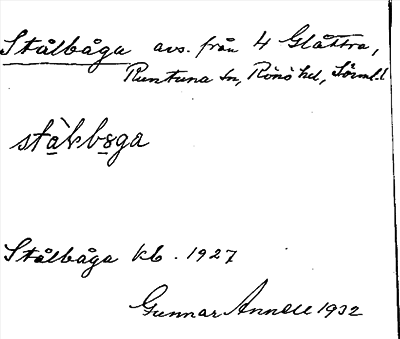 Stålbåga avs. från 4 Glåttra,
Runtuna sn, Rönö hd, Sörml.
stàkbǫga
Stålbåga kb. 1927
Gunnar Annell 1932